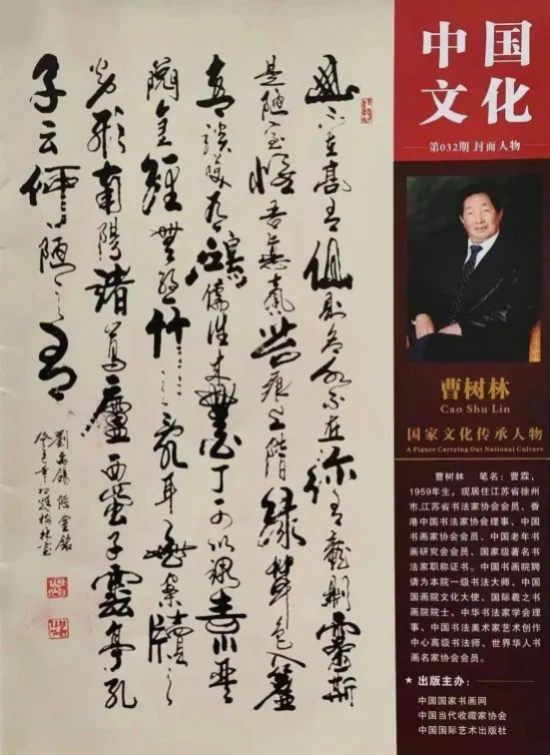 山不在高有仙則名水不在深有龍則靈斯
是陋室惟吾德馨苔痕上階綠草色入簾
青談笑有鴻儒往來無白丁可以調素琴
閱金經無絲竹之亂耳無案牘之
勞形南陽諸葛廬西蜀子雲亭孔
子云何陋之有
劉禹錫陋室銘
中国
文化
第032期 封面人物
曹树林
Cao Shu Lin
国家文化传承人物
A Figure Carrying Out National Culture
曹树林 笔名：曹霖，
1959年生，现居住江苏省徐州
市,江苏省书法家协会会员、香
港中国书法家协会理事、中国
书画家协会会员、中国老年书
画研究会会员、国家级著名书
法家职称证书。中国书画院聘
请为本院一级书法大师、中国
国画院文化大使、国际羲之书
画院院士、中华书法家学会理
事、中国书法美术家艺术创作
中心高级书法师、世界华人书
画名家协会会员。
★ 出版主办：
中国国家书画网
中国当代收藏家协会
中国国际艺术出版社